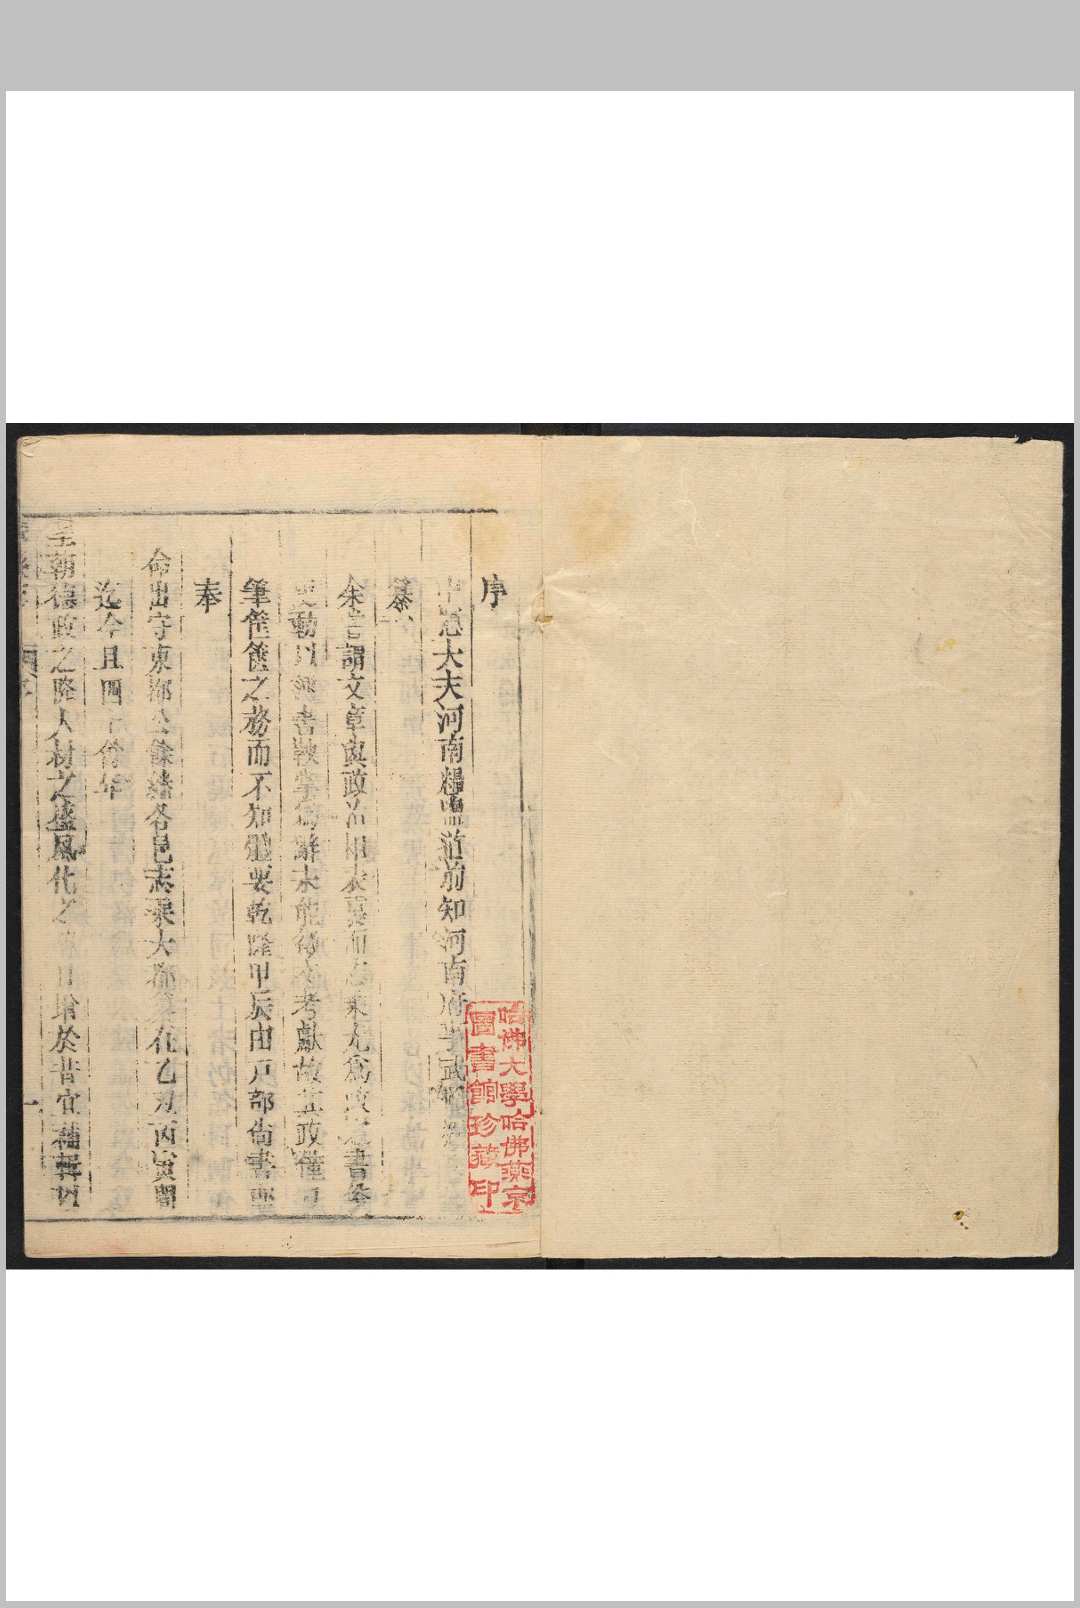 序
大夫河南糧鹽道前知河南府事武
纂
余嘗謂文章與政治相表裏而志乘尤爲政之書
動以簿書鞅掌爲辭未能徵文考獻故其政僅
筆筐篋之務而不知體要乾隆甲辰由戶部尙書
奉
命出守東都公餘繙各邑志乘大都纂在乙丑丙寅間
迄今且四十餘年
皇朝德政之隆人材之盛風化之 日增於昔宜補輯
哈佛大學哈佛燕京
圖書館珍藏印